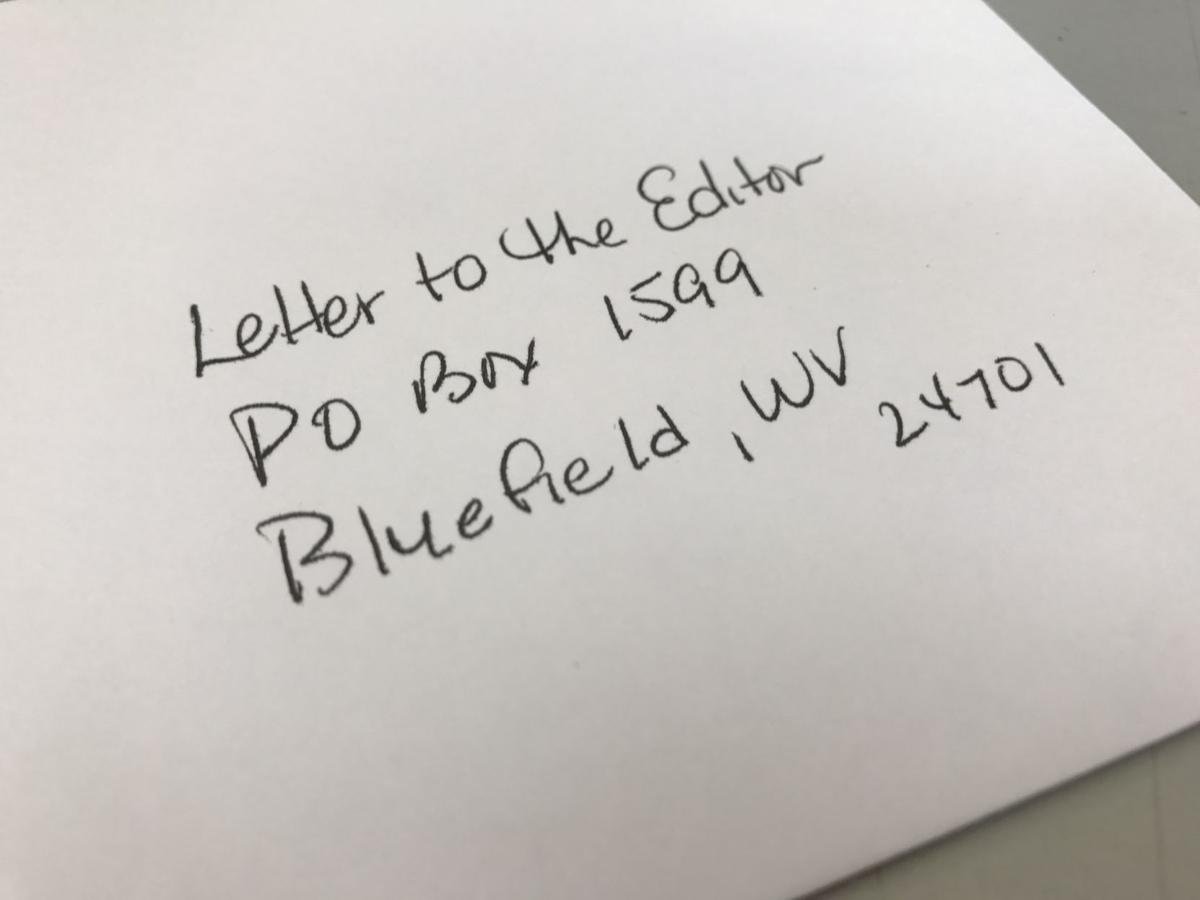 Letter to the Editor
PO Box 1599
Bluefield, WV 24701